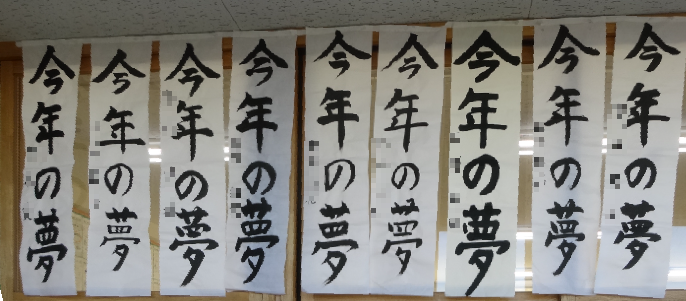 今年の夢
今年の夢
今年の夢
今年の夢
今年の夢
今年の夢
今年の夢
今年の夢
今年の夢